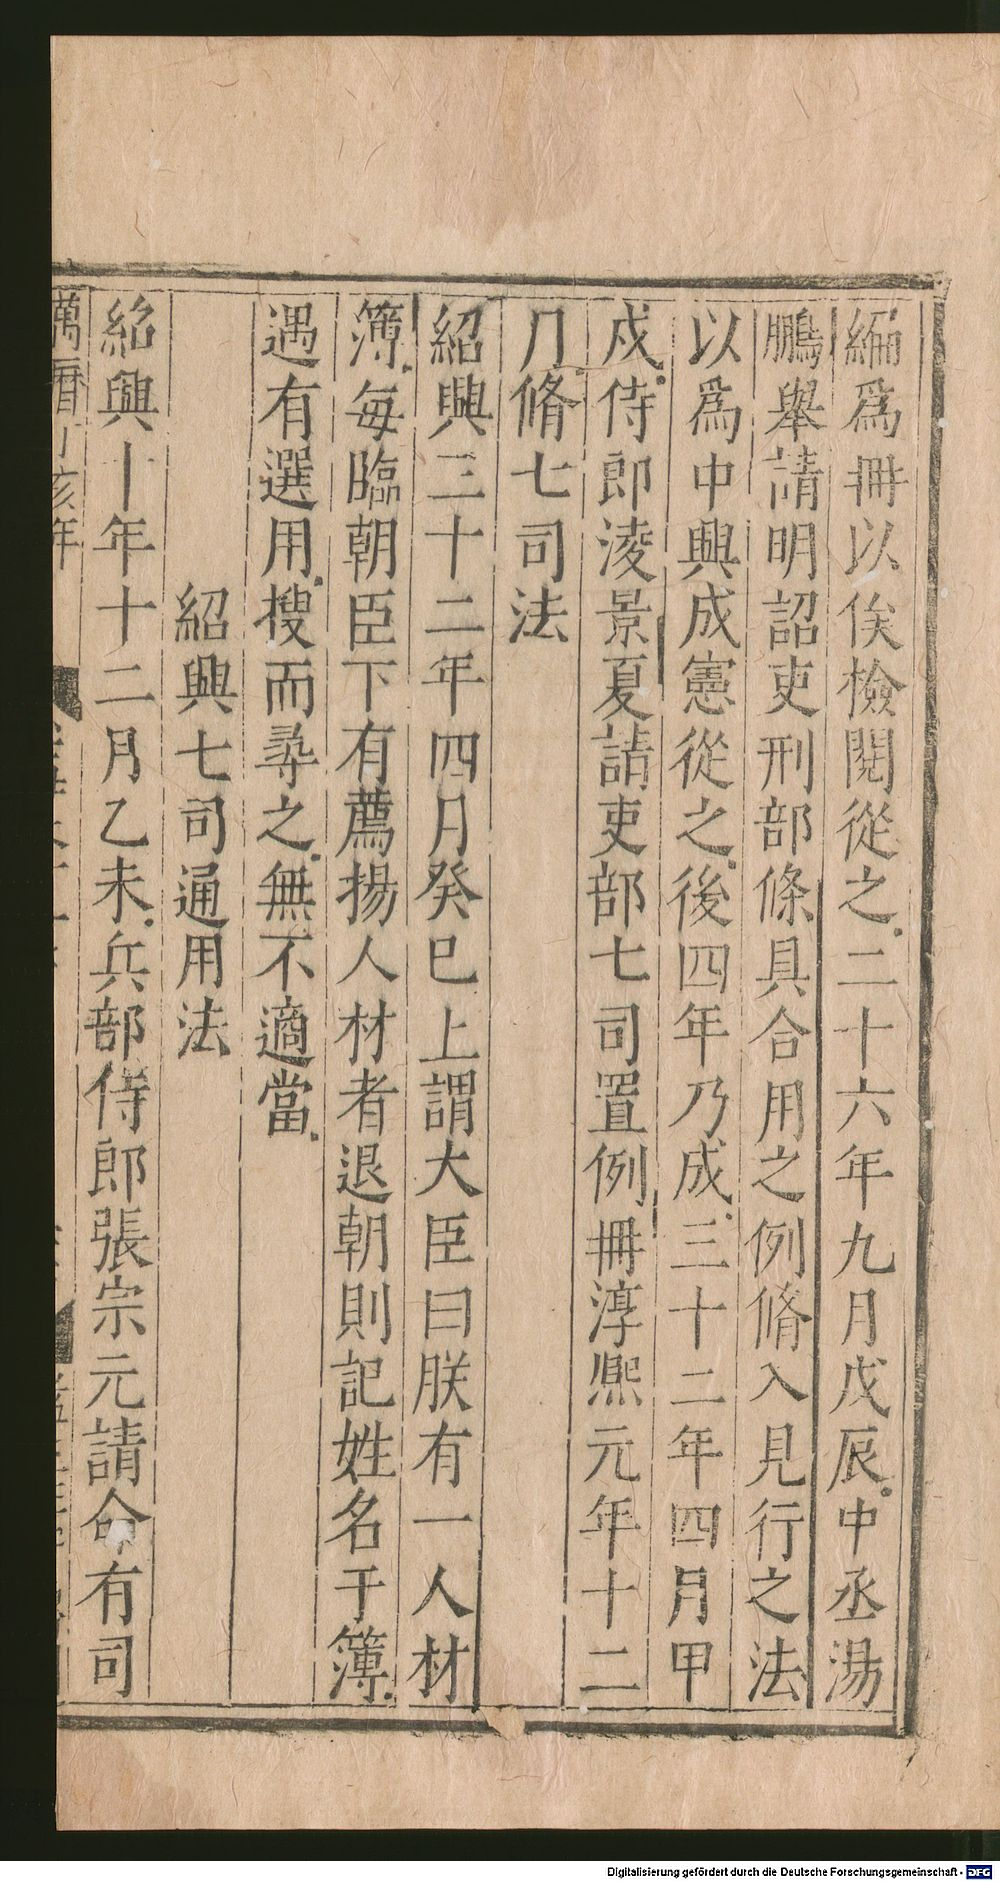 編爲冊以俟檢閱從之二十六年九月戊辰中丞湯
鵬舉請明詔吏刑部條具合用之例脩入見行之法
以爲中興成憲從之後四年乃成三十二年四月甲
戍侍郎淩景夏請吏部七司置例冊淳熈元年十二
月脩七司法
紹興三十二年四月癸巳上謂大臣曰朕有一人材
簿每臨朝臣下有薦揚人材者退朝則記姓名于簿
遇有選用搜而尋之無不適當
紹興七司通用法
紹興十年十二月乙未兵部侍郎張宗元請命有司
萬曆丁亥年
Digitalisierung gefördert durch die Deutsche Forschungsgemeinschaft - DFG